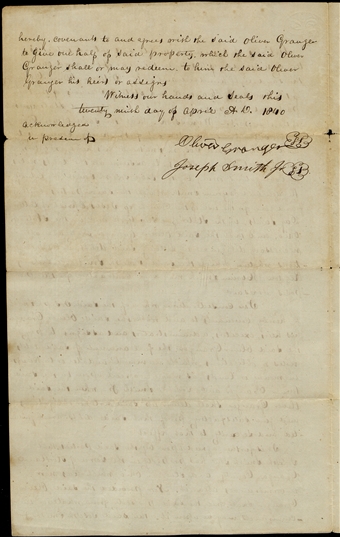 hereby, covenants to and agrees with the said Oliver Granger
to give out half of said property, which the said Oliver
Granger shall or may redeem, to him the said Oliver
Granger his heirs or assigns
Witness our hands and seals this
twenty ninth day of April A. D. 1840
acknowledged
in presence of
Oliver Granger
Joseph Smith Jr